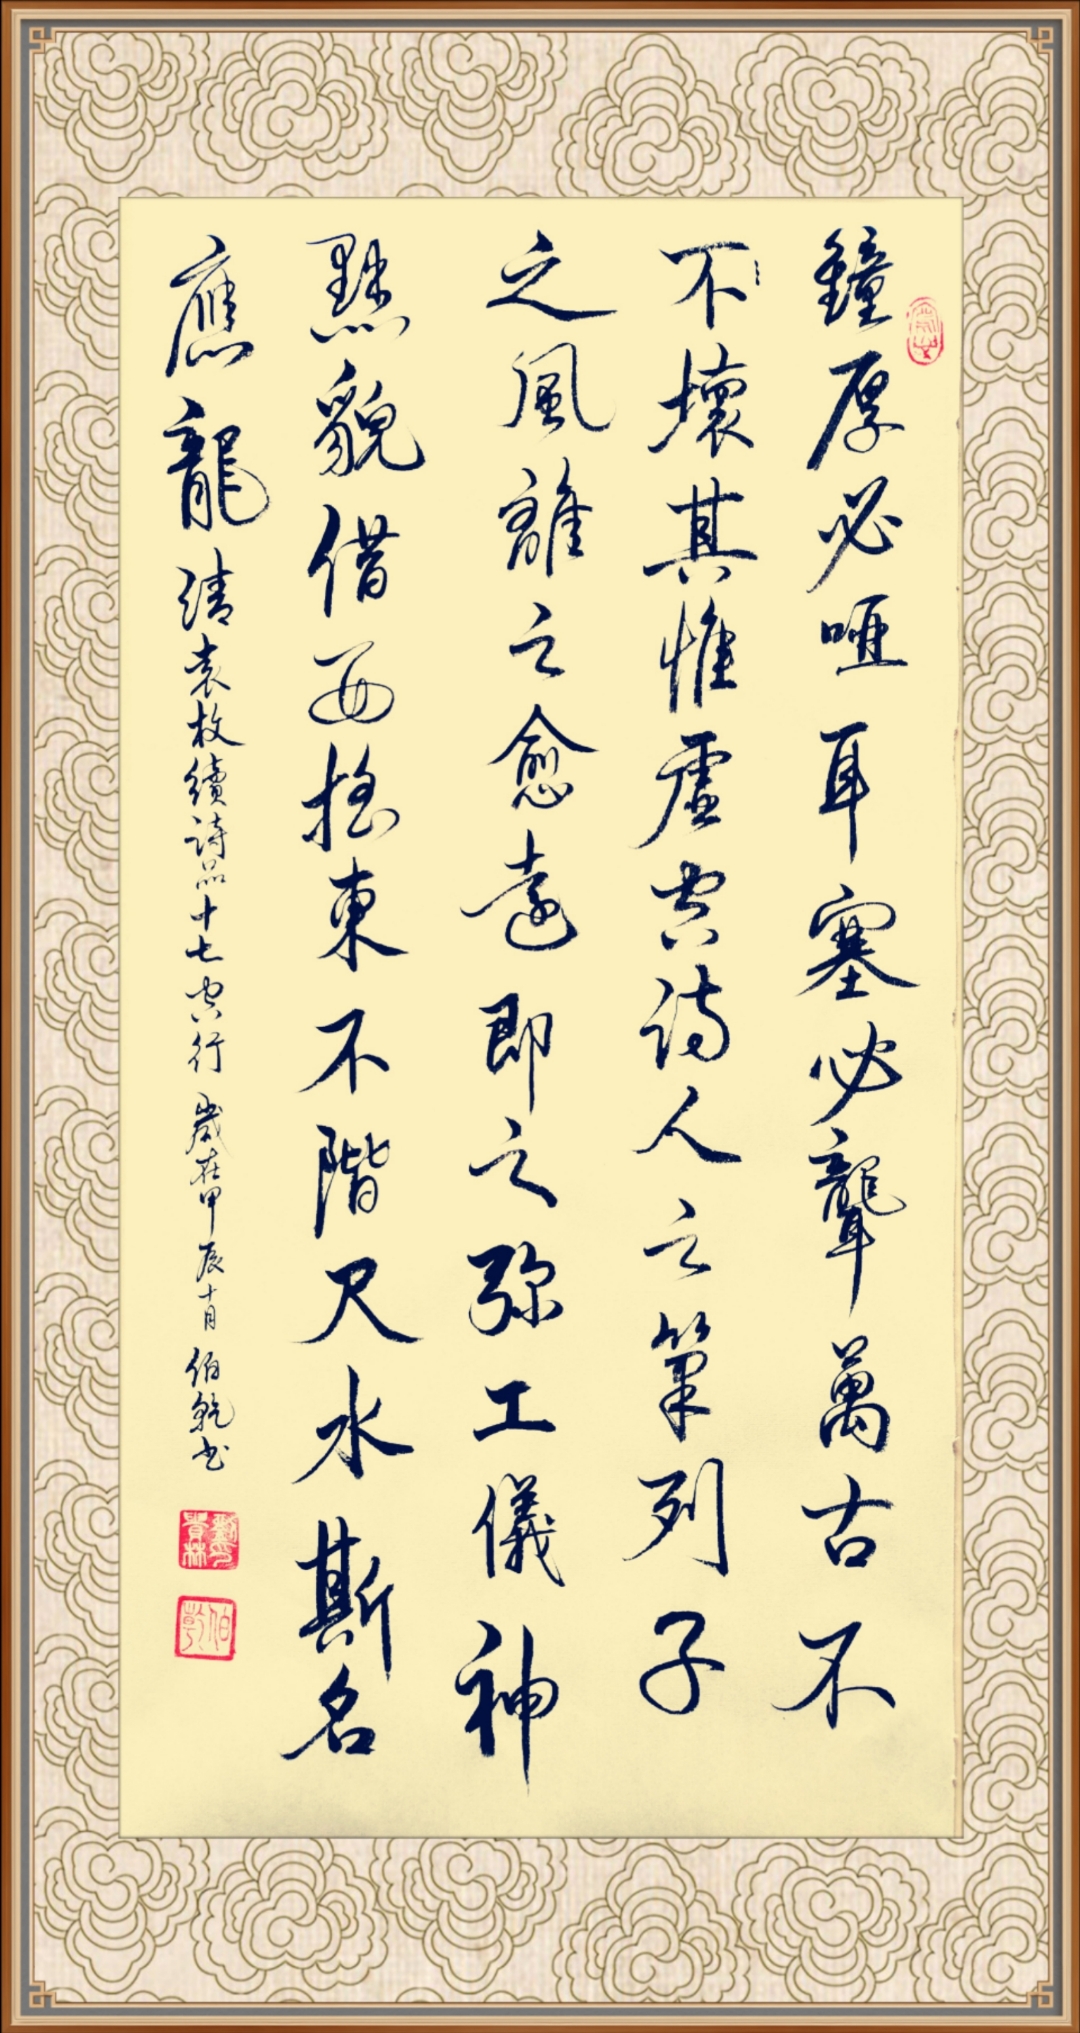 鐘厚必啞耳塞必聾萬古不
不壞其惟虛空詩人之筆列子
之風離之愈遠即之弥工儀神
黜貌借西摇東不階尺水斯名
應龍 清袁枚續詩品十七空行 歲在甲辰十月 伯乾书
伯乾